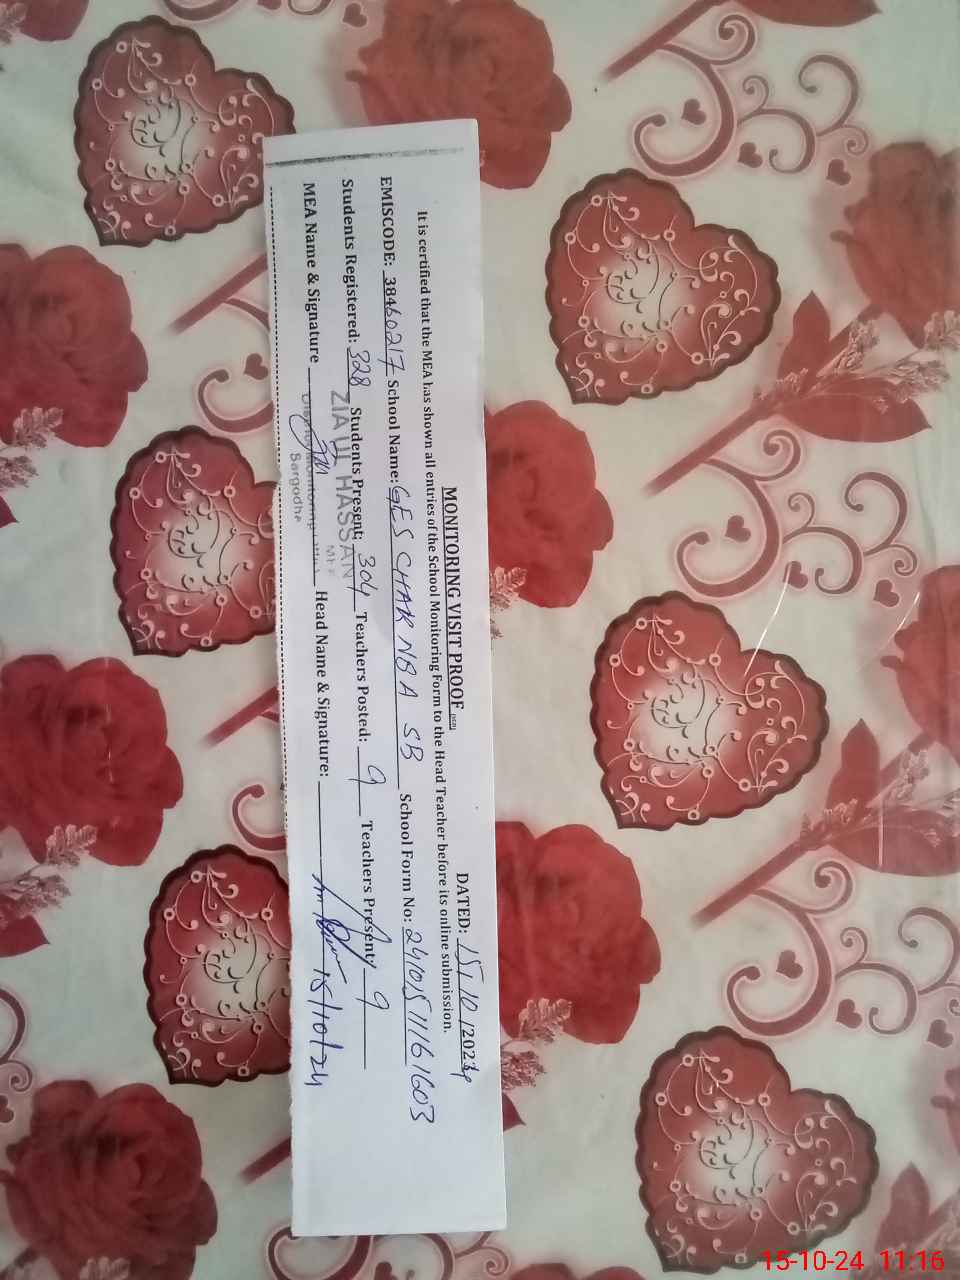 MONITORING VISIT PROOF
DATED: 15/10/2024
It is certified that the MEA has shown all entries of the School Monitoring Form to the Head Teacher before its online submission.
EMISCODE: 38460217 School Name: GES CHAK NO 8 A SB School Form No: 24101511161603
Students Registered: 328 Students Present: 304 Teachers Posted: 9 Teachers Present 9
ZIA UL HASSAN
MEA Name & Signature Head Name & Signature: 15/10/24
Sargodha
15-10-24 11:16